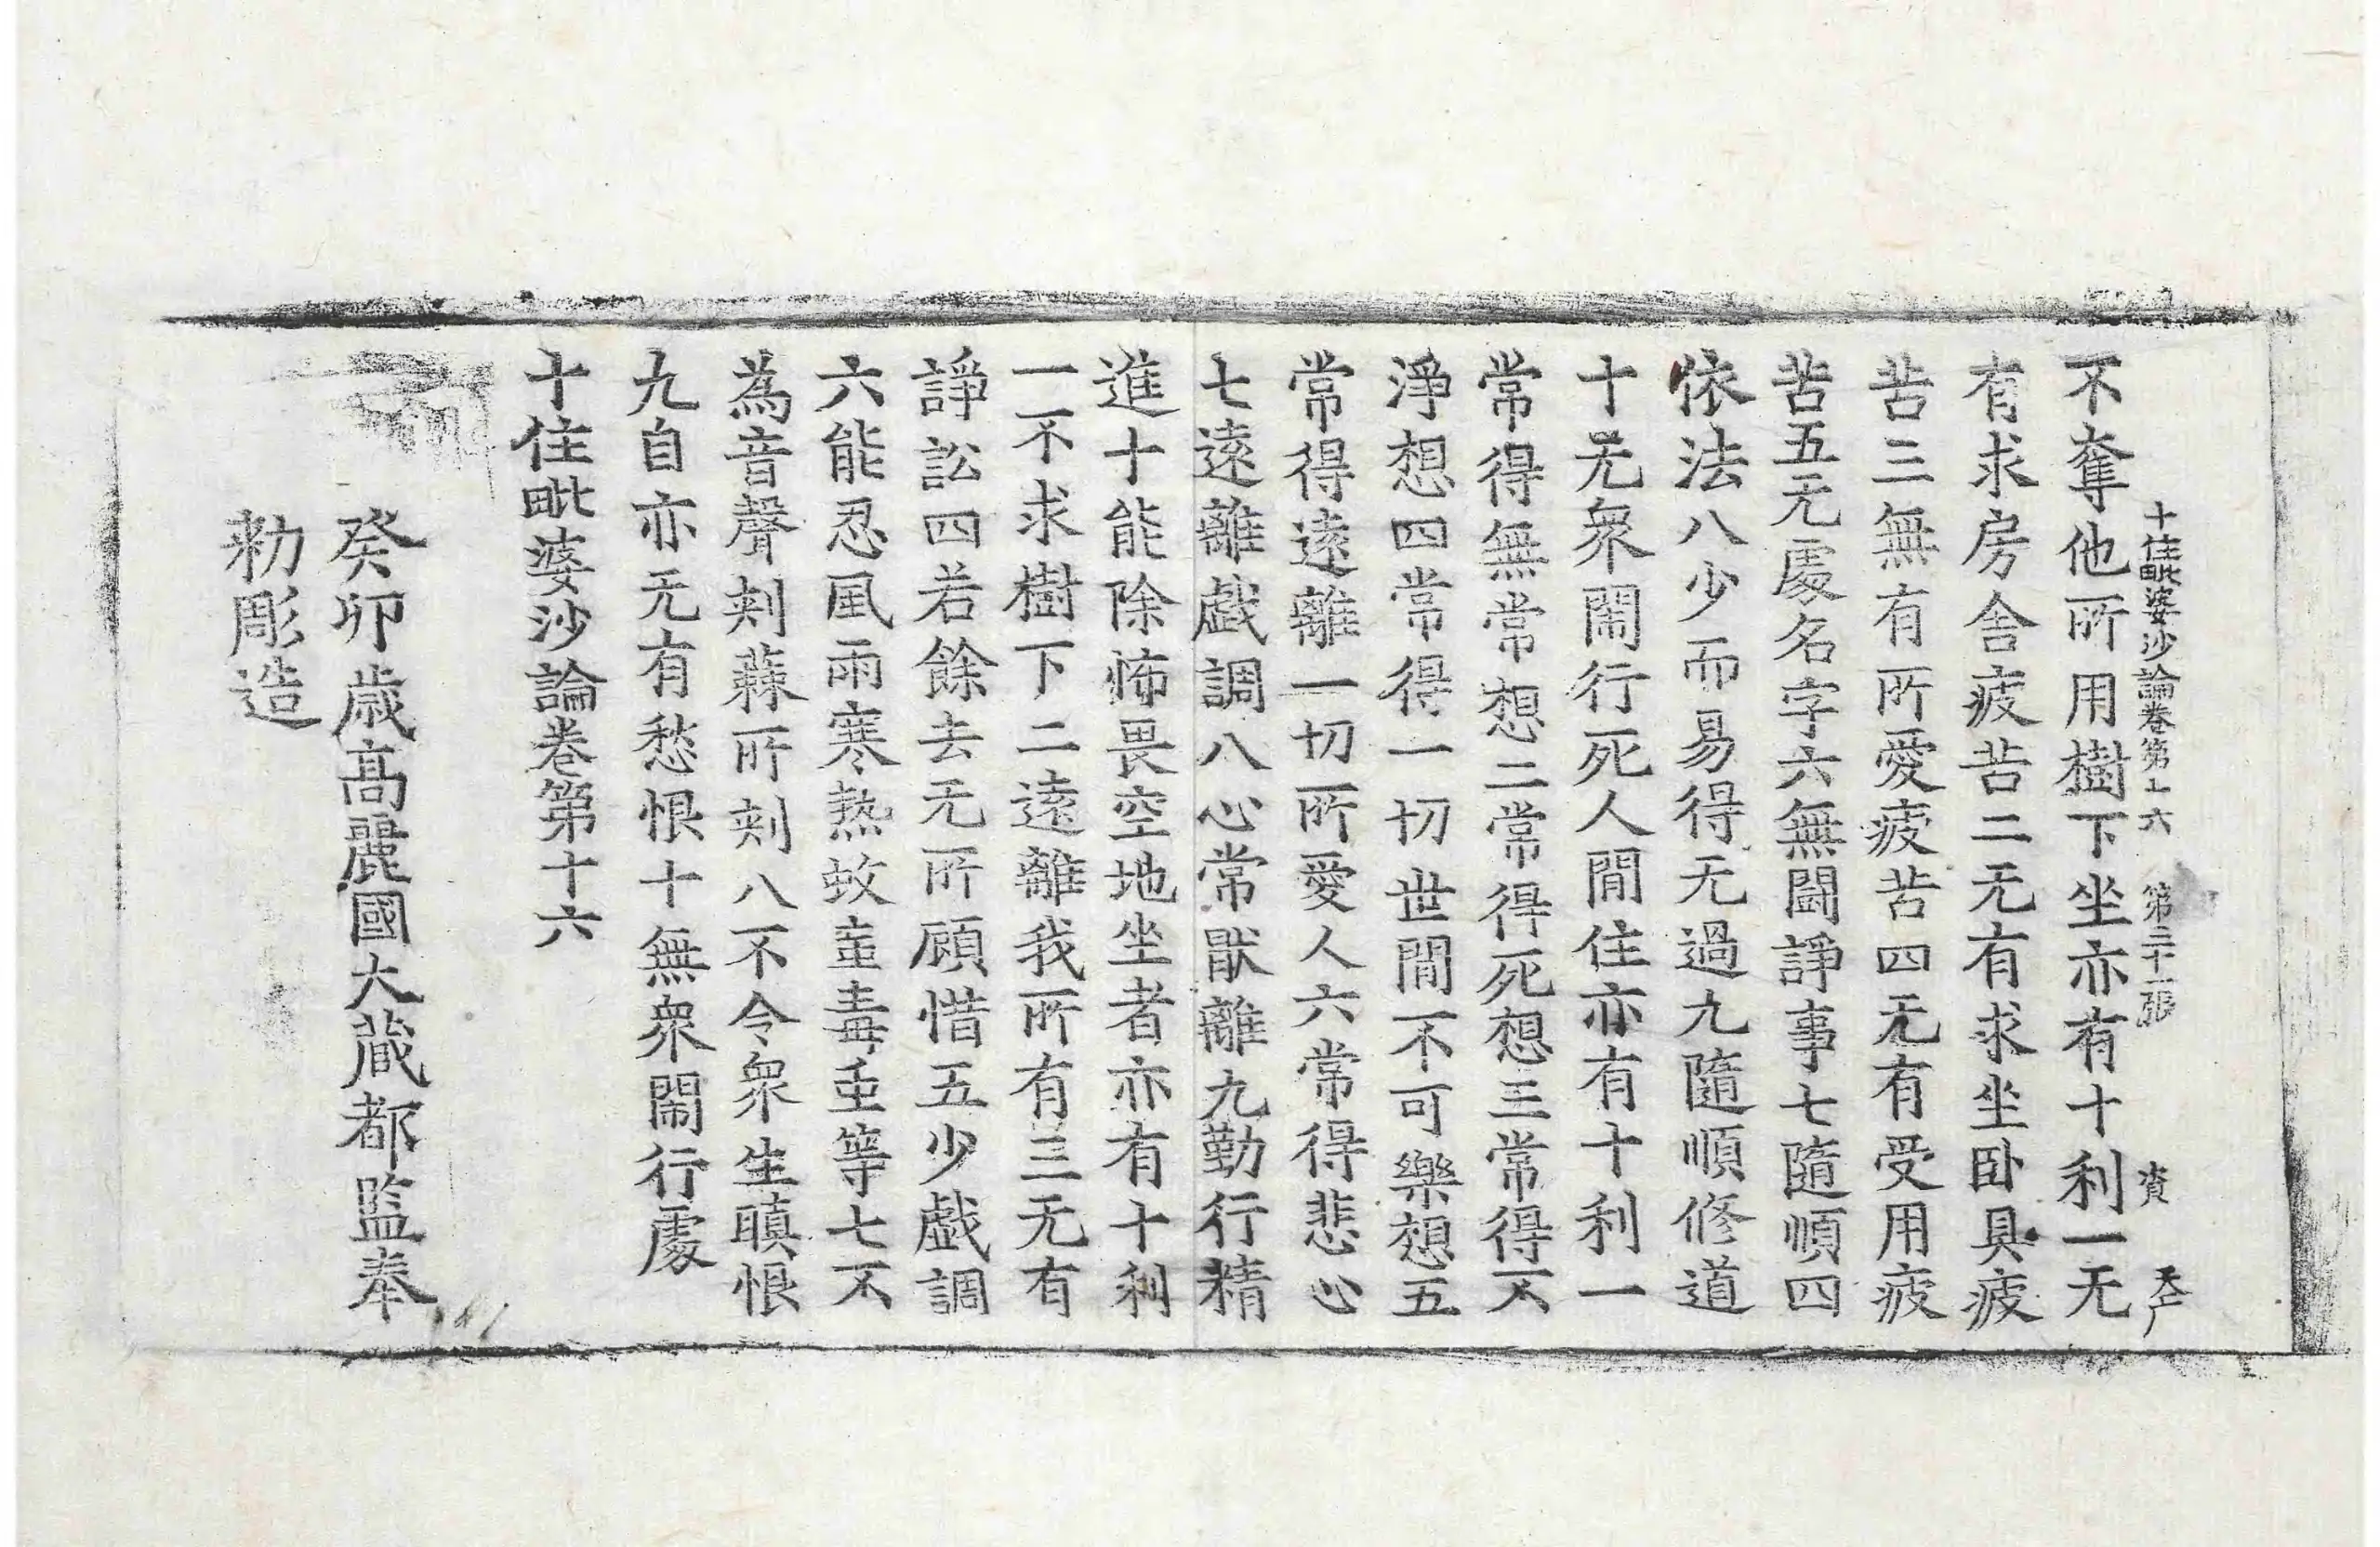 十住毗婆沙論卷第十六 第二十一張 資
不奪他所用樹下坐亦有十利一无
有求房舍疲苦二无有求坐卧具疲
苦三無有所愛疲苦四无有受用疲
苦五无處名字六無鬪諍事七隨順四
依法八少而易得无過九隨順修道
十无衆閙行死人閒住亦有十利一
常得無常想二常得死想三常得不
淨想四常得一切世閒不可樂想五
常得遠離一切所愛人六常得悲心
七遠離戱調八心常猒離九勤行精
進十能除怖畏空地坐者亦有十利
一不求樹下二遠離我所有三无有
諍訟四若餘去无所顧惜五少戱調
六能忍風雨寒熱蚊䖟毒虫等七不
為音聲刾蕀所刾八不令衆生瞋恨
九自亦无有愁恨十無衆閙行處
十住毗婆沙論卷第十六
癸卯歳高麗國大藏都監奉
勑彫造